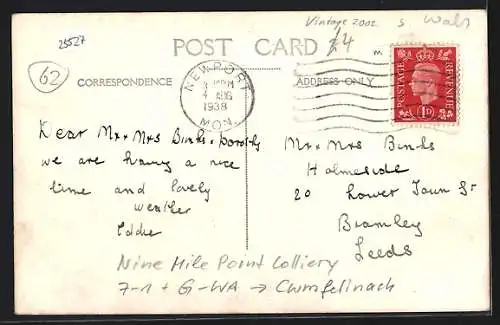 Vintage 2002 S Wales
25527
£4
62
POST CARD
CORRESPONDENCE
ADDRESS ONLY
NEWPORT
4 AUG
1938
MON.
POSTAGE
REVENUE
1D
Dear Mr & Mrs Binks & Dorothy
we are having a nice
time and lovely
weather
Eddie
Mr & Mrs Binks
Holmeside
20 Lower Town St
Bramley
Leeds
Nine Mile Point Colliery
7-1 + G-WA → Cwmfelinach